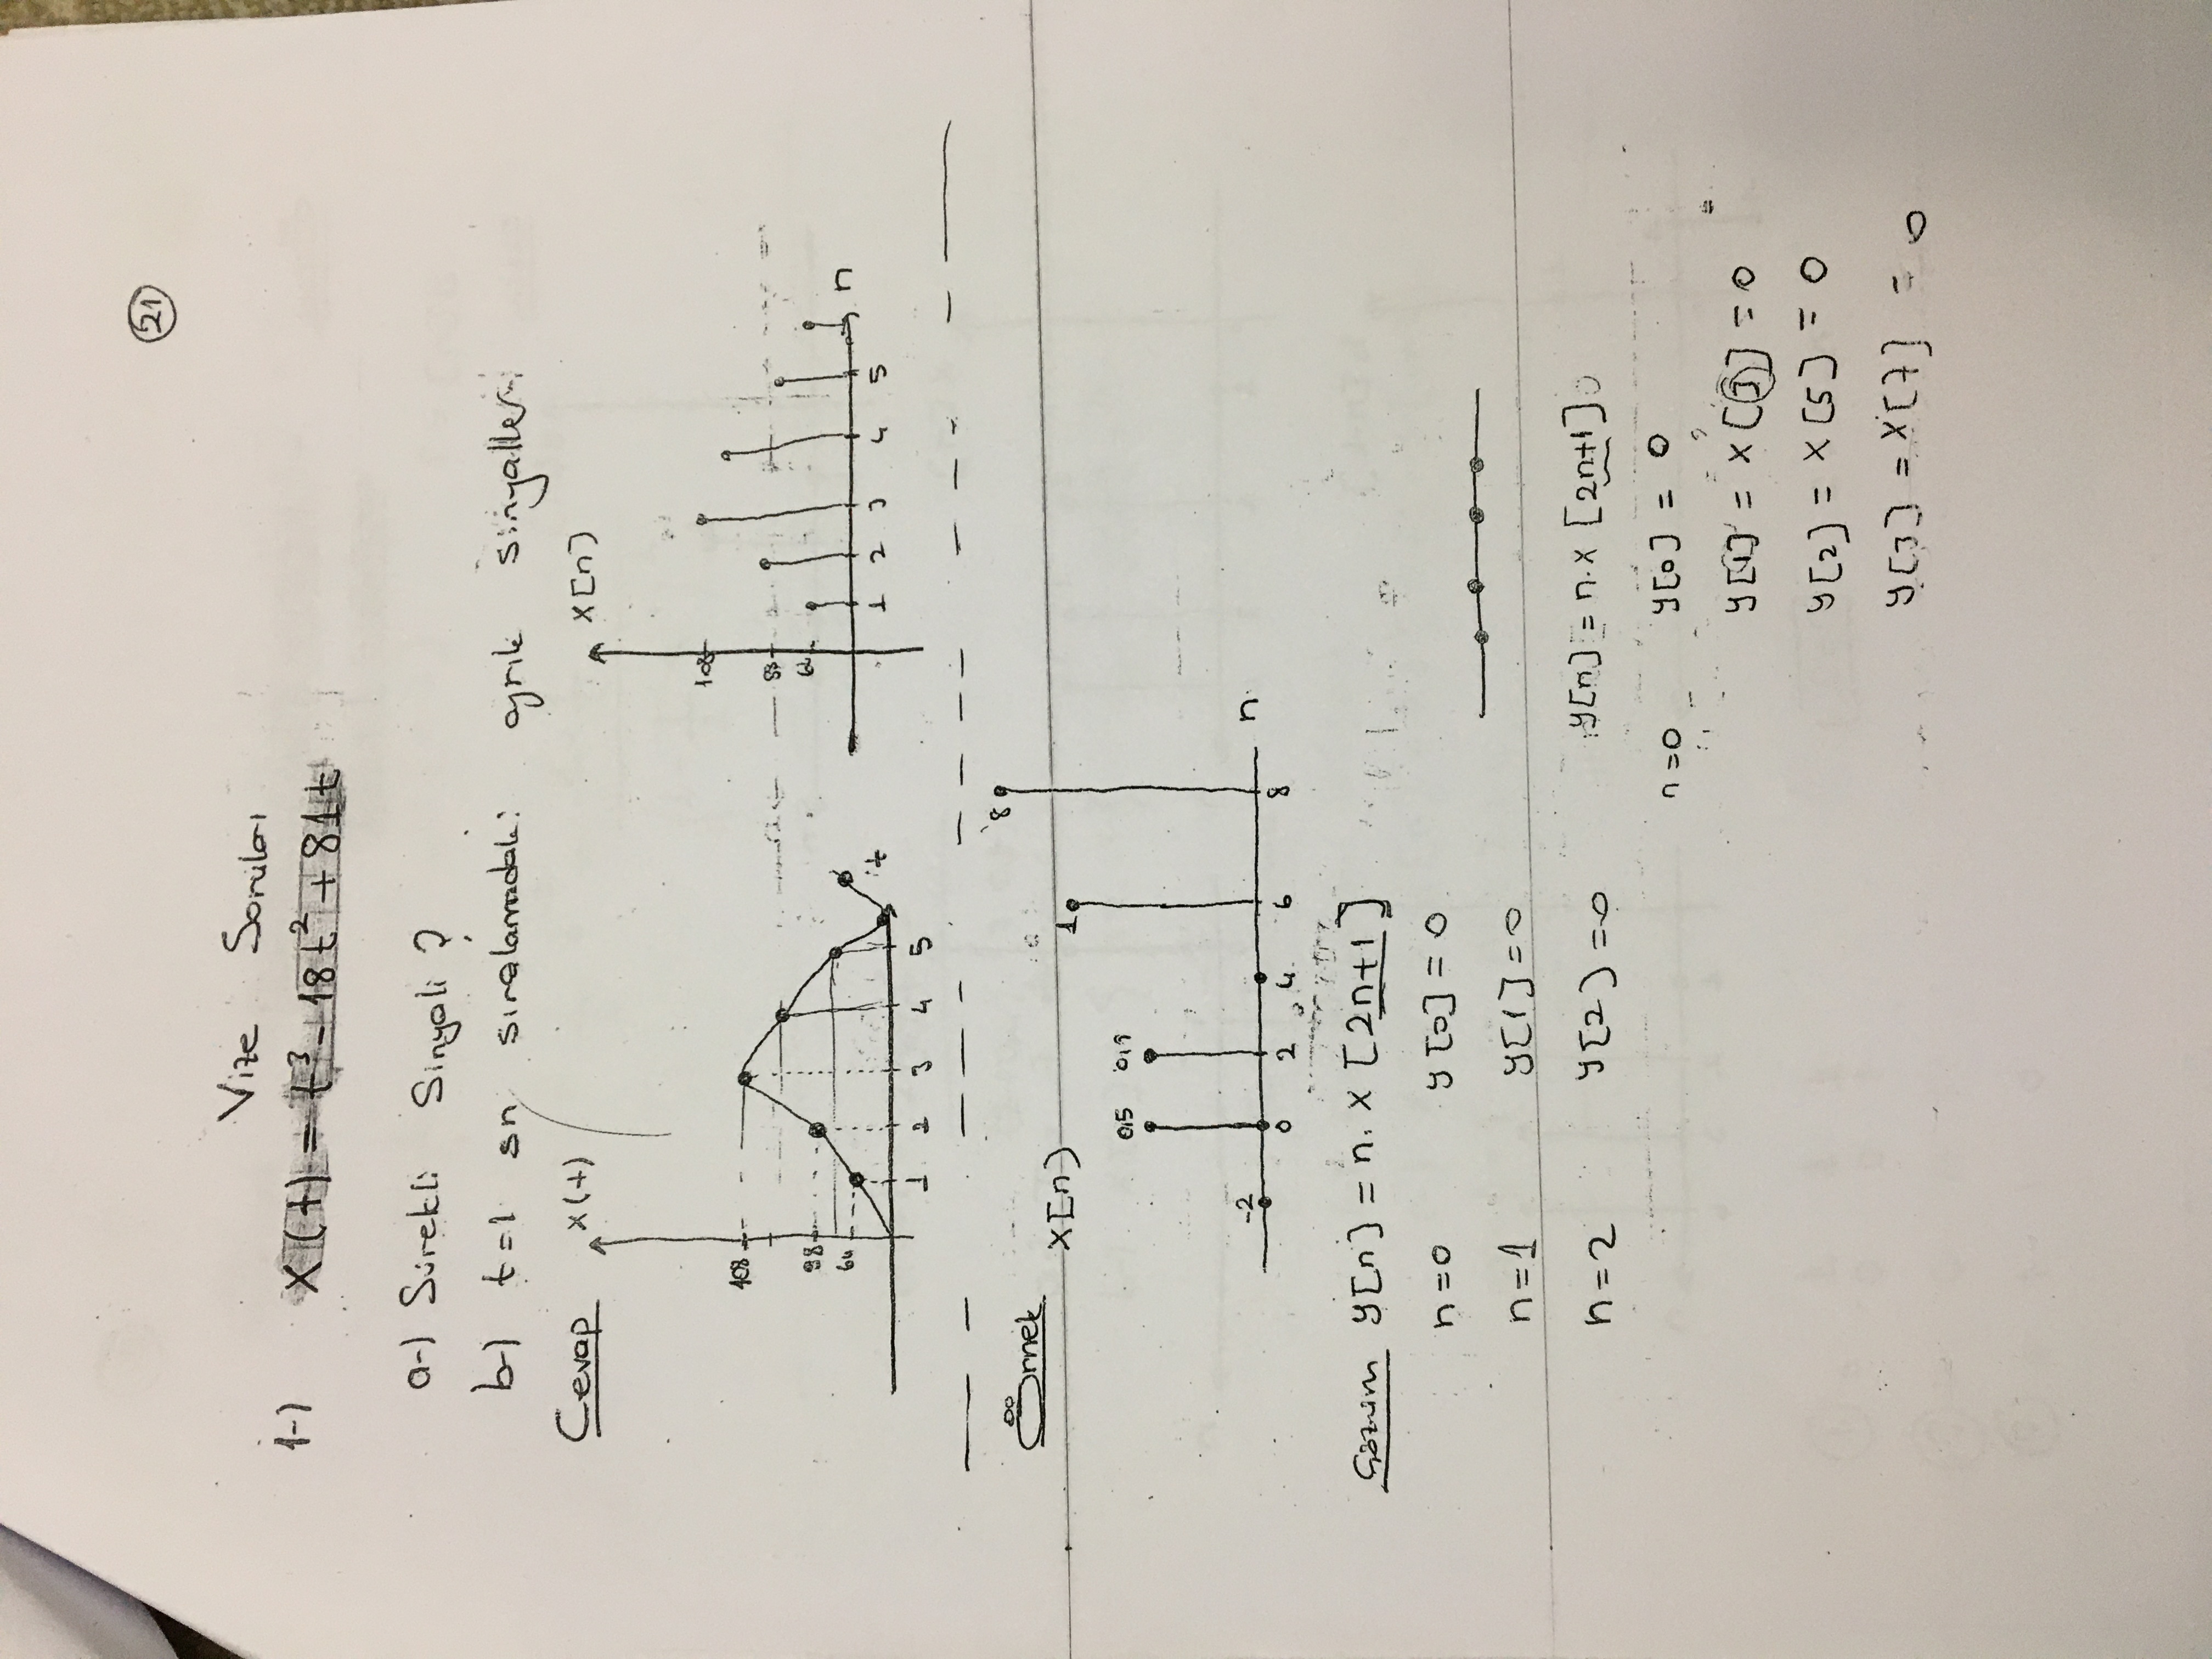 21
Vize Soruları
1-) x(t) = t³ - 18t² + 81t
a-) Sürekli Sinyali ?
b-) t=1 sn sıralamadaki ayrık sinyaller
Cevap x(t) x[n]
108
98
64
1 2 3 4 5 t
108
98
64
1 2 3 4 5 n
Örnek
x[n]
0,5 0,9 1 8
-2 0 2 4 6 8 n
Çözüm y[n] = n. x [2n+1]
n=0 y[0] = 0
n=1 y[1] = 0
n=2 y[2] = 0
y[n] = n.x [2n+1]
n=0 y[0] = 0
y[1] = x[3] = 0
y[2] = x[5] = 0
y[3] = x[7] = 0